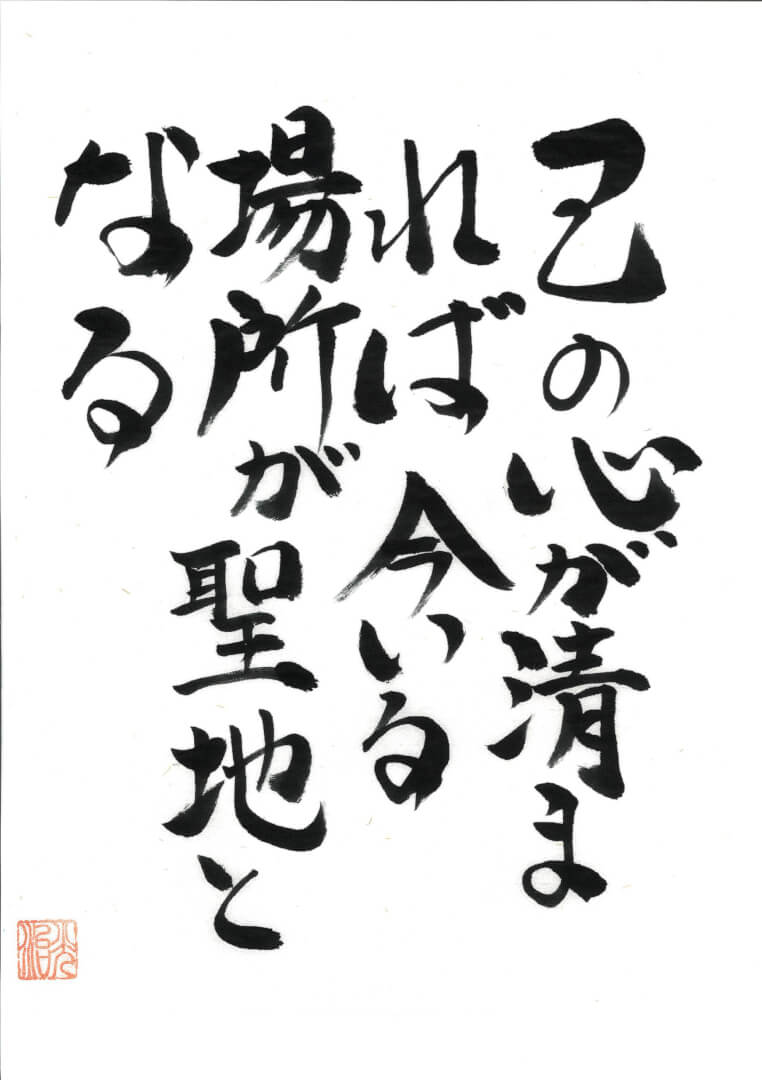 己の心が清ま
れば 今いる
場所が聖地と
なる